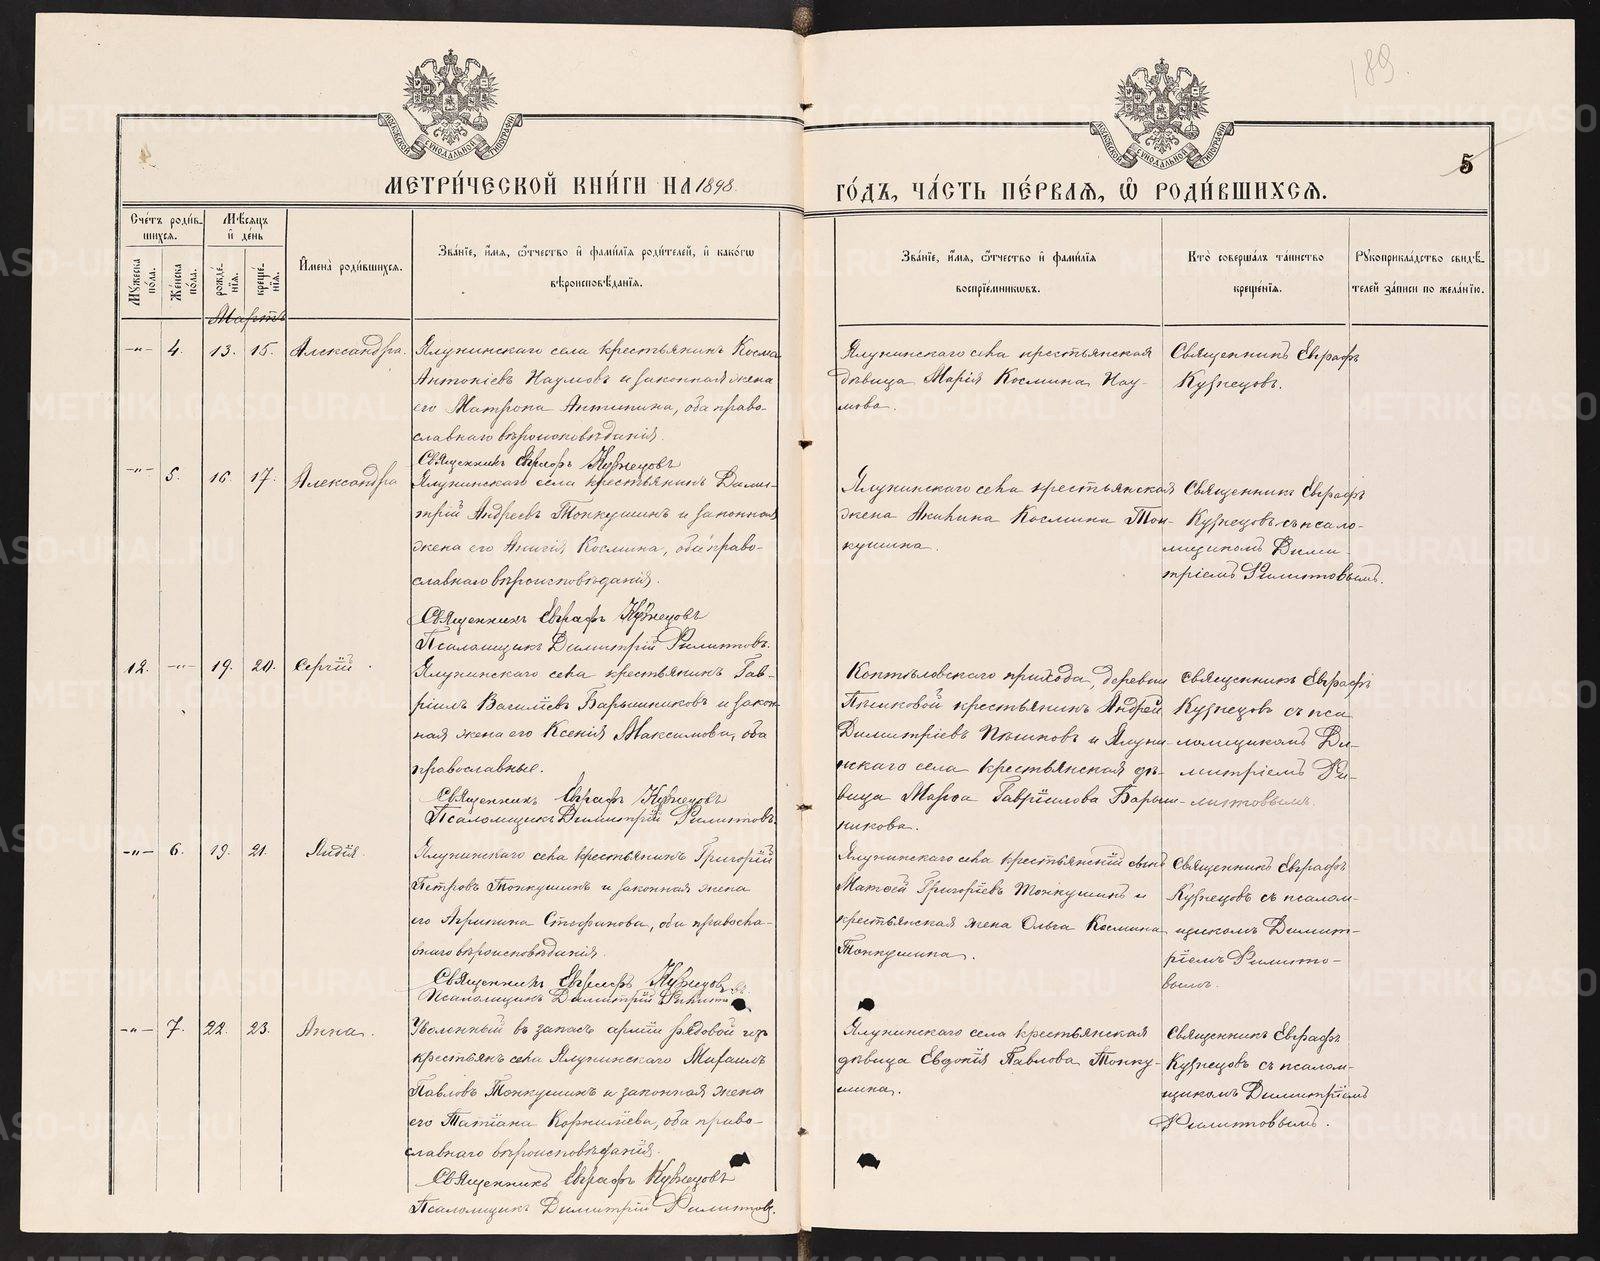 189
МОСКОВСКОЙ СѴНОДАЛЬНОЙ ТИПОГРАФІИ
МОСКОВСКОЙ СѴНОДАЛЬНОЙ ТИПОГРАФІИ
5
МЕТРИ́ЧЕСКОЙ КНИ́ГИ НА 1898
ГО́ДЪ, ЧА́СТЬ ПЕ́РВАѦ, Ѽ РОДИ́ВШИХСѦ.
Сче́тъ роди́в-
шихсѧ.
Мꙋжеска по́ла.
Же́нска по́ла.
Мѣ́сѧцъ
и҆ де́нь
рожде́-
нїѧ.
креще́-
нїѧ.
И҆мена̀ роди́вшихсѧ.
Зва́нїе, и҆́мѧ, ѻ҆́тчество и҆ фами́лїѧ роди́телей, и҆ како́гѡ
вѣроисповѣ́данїѧ.
Зва́нїе, и҆́мѧ, ѻ҆́тчество и҆ фами́лїѧ
воспрїе́мникѡвъ.
Кто̀ соверша́лъ та́инство
креще́нїѧ.
Рꙋкоприкла́дство свидѣ́-
телей за́писи по жела́нїю.
Мартъ
-"- 4. 13. 15. Александра.
Ялунинскаго села крестьянинъ Косма
Антоніевъ Наумовъ и законная жена
его Матрона Антипина, оба право-
славнаго вѣроисповѣданія.
Священникъ Евграфъ Кузнецовъ
Ялунинскаго села крестьянская
дѣвица Марія Космина Нау-
мова.
Священникъ Евграфъ
Кузнецовъ.
-"- 5. 16. 17. Александра
Ялунинскаго села крестьянинъ Дими-
трій Андреевъ Тонкушинъ и законная
жена его Космина, оба право-
славнаго вѣроисповѣданія.
Священникъ Евграфъ Кузнецовъ
Псаломщикъ Димитрій Филитовъ.
Ялунинскаго села крестьянская
жена Акилина Космина Тон-
кушина.
Священникъ Евграфъ
Кузнецовъ съ псало-
мщикомъ Дими-
тріемъ Филитовымъ.
12. -"- 19. 20. Сергій.
Ялунинскаго села крестьянинъ Гав-
ріилъ Василіевъ Барышниковъ и закон-
ная жена его Ксенія Максимова, оба
православные.
Священникъ Евграфъ Кузнецовъ
Псаломщикъ Димитрій Филитовъ.
Коптѣловскаго прихода, деревни
Пѣшковой крестьянинъ Андрей
Димитріевъ Пѣшковъ и Ялуни-
нскаго села крестьянская дѣ-
вица Марѳа Гавріилова Барыш-
никова.
Священникъ Евграфъ
Кузнецовъ съ пса
ломщикомъ Ди-
митріемъ Фи-
литовымъ.
-"- 6. 19. 21. Лидія.
Ялунинскаго села крестьянинъ Григорій
Петровъ Тонкушинъ и законная жена
его Агрипина Стефанова, оба правосла-
внаго вѣроисповѣданія.
Священникъ Евграфъ Кузнецовъ
Псаломщикъ Димитрій
Ялунинскаго села крестьянскій сынъ
Матѳей Григоріевъ Тонкушинъ и
крестьянская жена Ольга Космина
Тонкушина.
Священникъ Евграфъ
Кузнецовъ съ псалом-
щикомъ Димит-
ріемъ Филито-
вымъ.
-"- 7. 22. 23. Анна.
Уволенный въ запасъ арміи рядовой изъ
крестьянъ села Ялунинскаго Михаилъ
Павловъ Тонкушинъ и законная жена
его Татіана Корниліева, оба право-
славнаго вѣроисповѣданія.
Священникъ Евграфъ Кузнецовъ
Псаломщикъ Димитрій Филитовъ.
Ялунинскаго села крестьянская
дѣвица Евдокія Павлова Тонку-
шина.
Священникъ Евграфъ
Кузнецовъ съ псалом-
щикомъ Димитріемъ
Филитовымъ.
METRIKI.GASO-URAL.RU